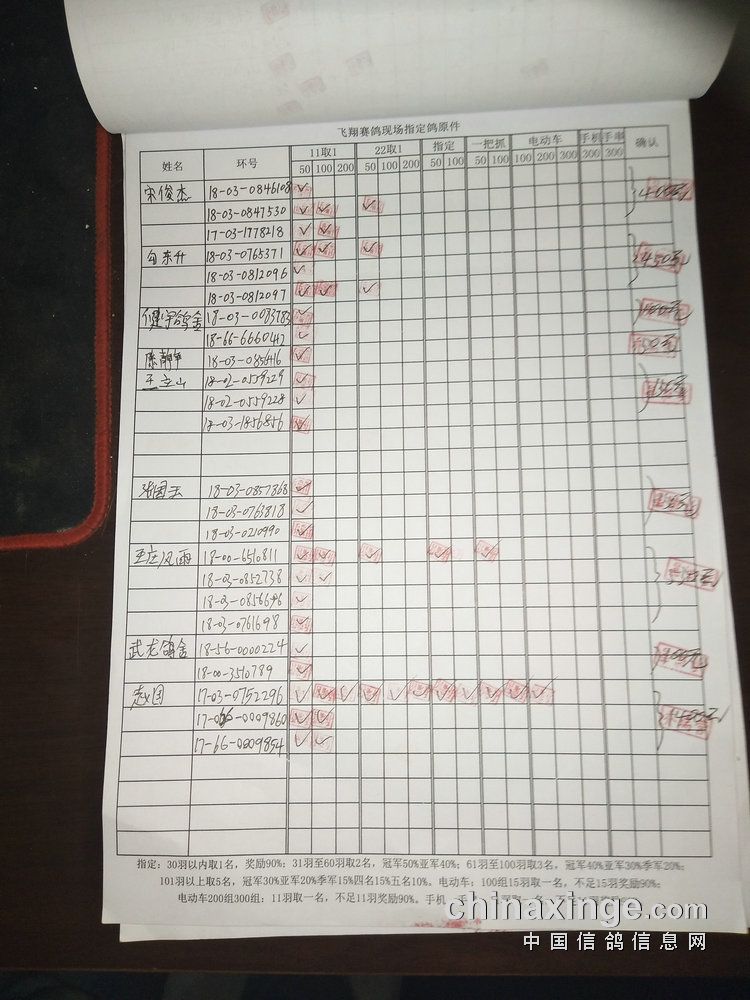 飞翔赛鸽现场指定鸽原件
姓名 环号 11取1 22取1 指定 一把抓 电动车 手机 手串 确认
50 100 200 50 100 200 50 100 50 100 100 200 300 300 300
宋俊杰 18-03-0846108 ✓
18-03-0847530 ✓ ✓ ✓
17-03-1778218 ✓ ✓
勾东升 18-03-0765371 ✓ ✓ ✓ 450元
18-03-0812096 ✓
18-03-0812097 ✓ ✓ ✓
健宇鸽舍 18-03-0083783 ✓ 100元
18-66-6660442 ✓
50元
18-03-0856416 ✓
王立山 18-02-0559229 ✓ 150元
18-02-0559228 ✓
18-03-1856856 ✓
张国玉 18-03-0857868 ✓
18-03-0763818 ✓
18-03-0210990 ✓
王庄风雨 18-00-6510811 ✓ ✓ ✓ ✓ ✓
18-03-0852738 ✓ ✓
18-03-0856646 ✓
18-03-0761698 ✓
武龙鸽舍 18-56-0000224 ✓ 100元
18-00-3510789 ✓
赵国 17-03-0752296 ✓ ✓ ✓ ✓ ✓ ✓ ✓ ✓ ✓ ✓ ✓
17-66-0009860 ✓ ✓
17-66-0009854 ✓ ✓
指定：30羽以内取1名，奖励90%；31羽至60羽取2名，冠军50%亚军40%；61羽至100羽取3名，冠军40%亚军30%季军20%；
101羽以上取5名，冠军30%亚军20%季军15%四名15%五名10%。电动车：100组15羽取一名，不足15羽奖励90%；
电动车200组300组：11羽取一名，不足11羽奖励90%。手机
chinaxinge.com
中国信鸽信息网